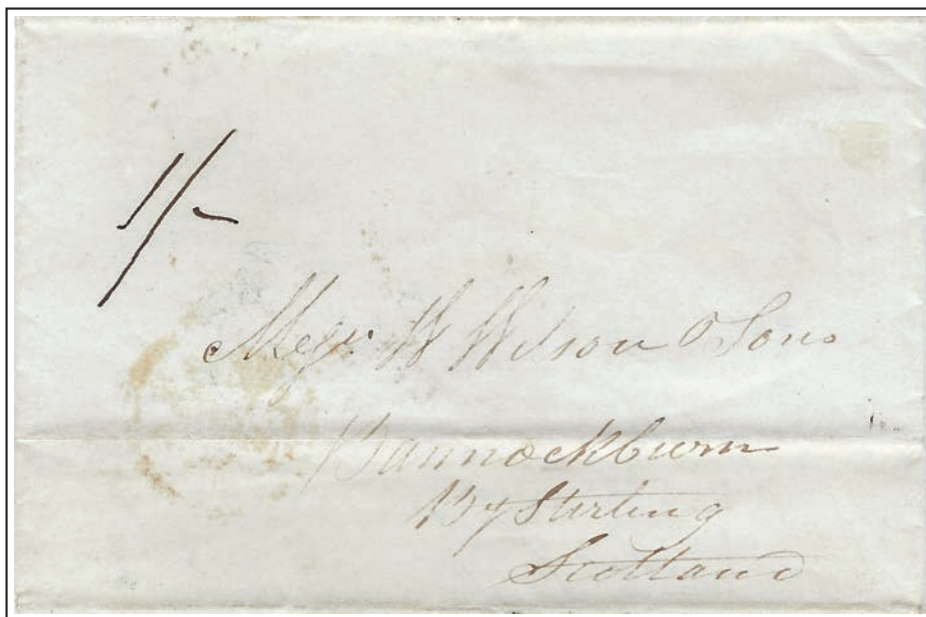 1/-
Messrs W Wilson & Sons
Bannockburn
By Stirling
Scotland